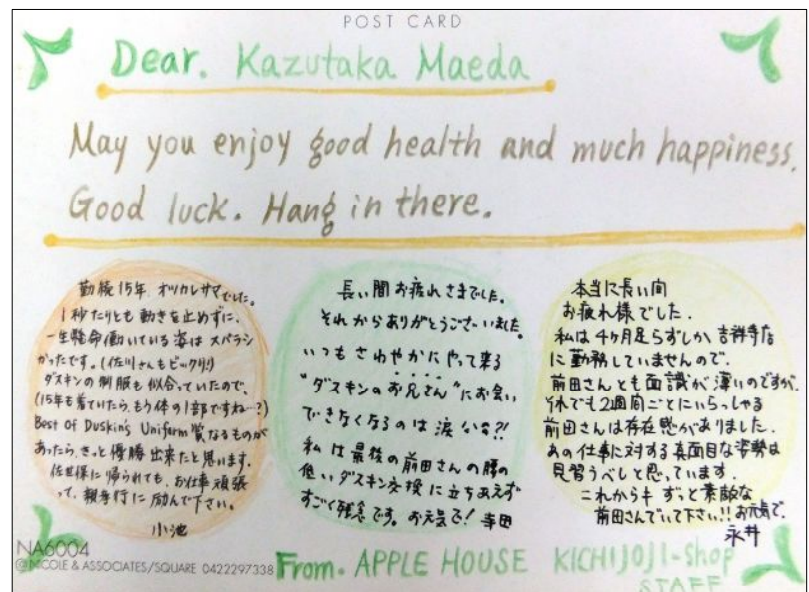 POST CARD
Dear. Kazutaka Maeda
May you enjoy good health and much happiness.
Good luck. Hang in there.
勤続15年、オツカレサマでした。
1秒たりとも動きを止めずに、
一生懸命働いている姿はスバラシ
かったです。(佐川さんもビックリ!)
ダスキンの制服も似合っていたので、
(15年も着ていたら、もう体の1部ですね…?)
Best of Duskin's Uniform 賞なるものが
あったら、きっと優勝出来たと思います。
佐世保に帰られても、お仕事頑張
って、親孝行に励んで下さい。
小池
長い間お疲れさまでした。
それからありがとうございました。
いつもさわやかにやって来る
"ダスキンのお兄さん"にお会い
できなくなるのは涙なる?!
私は最後の前田さんの腰の
低いダスキン交換に立ちあえず
すごく残念です。お元気で! 寺田
本当に長い間
お疲れ様でした。
私は4ヶ月足らずしか吉祥寺店
に勤務していませんので、
前田さんとも面識が薄いのですが、
それでも2週間ごとにいらっしゃる
前田さんは存在感がありました。
あの仕事に対する真面目な姿勢は
見習うべしと思っています。
これからキずっと素敵な
前田さんでいて下さい!! お元気で。
永井
NA6004
@NICOLE & ASSOCIATES/SQUARE 0422297338
From. APPLE HOUSE KICHIJOJI-shop
STAFF